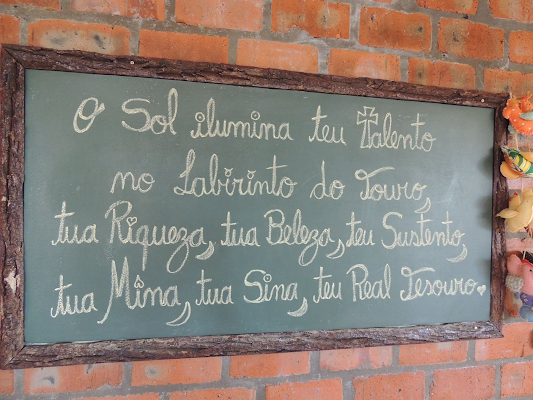 O Sol ilumina teu Talento
no Labirinto do Touro,
tua Riqueza, tua Beleza, teu Sustento,
tua Mina, tua Sina, teu Real Tesouro.